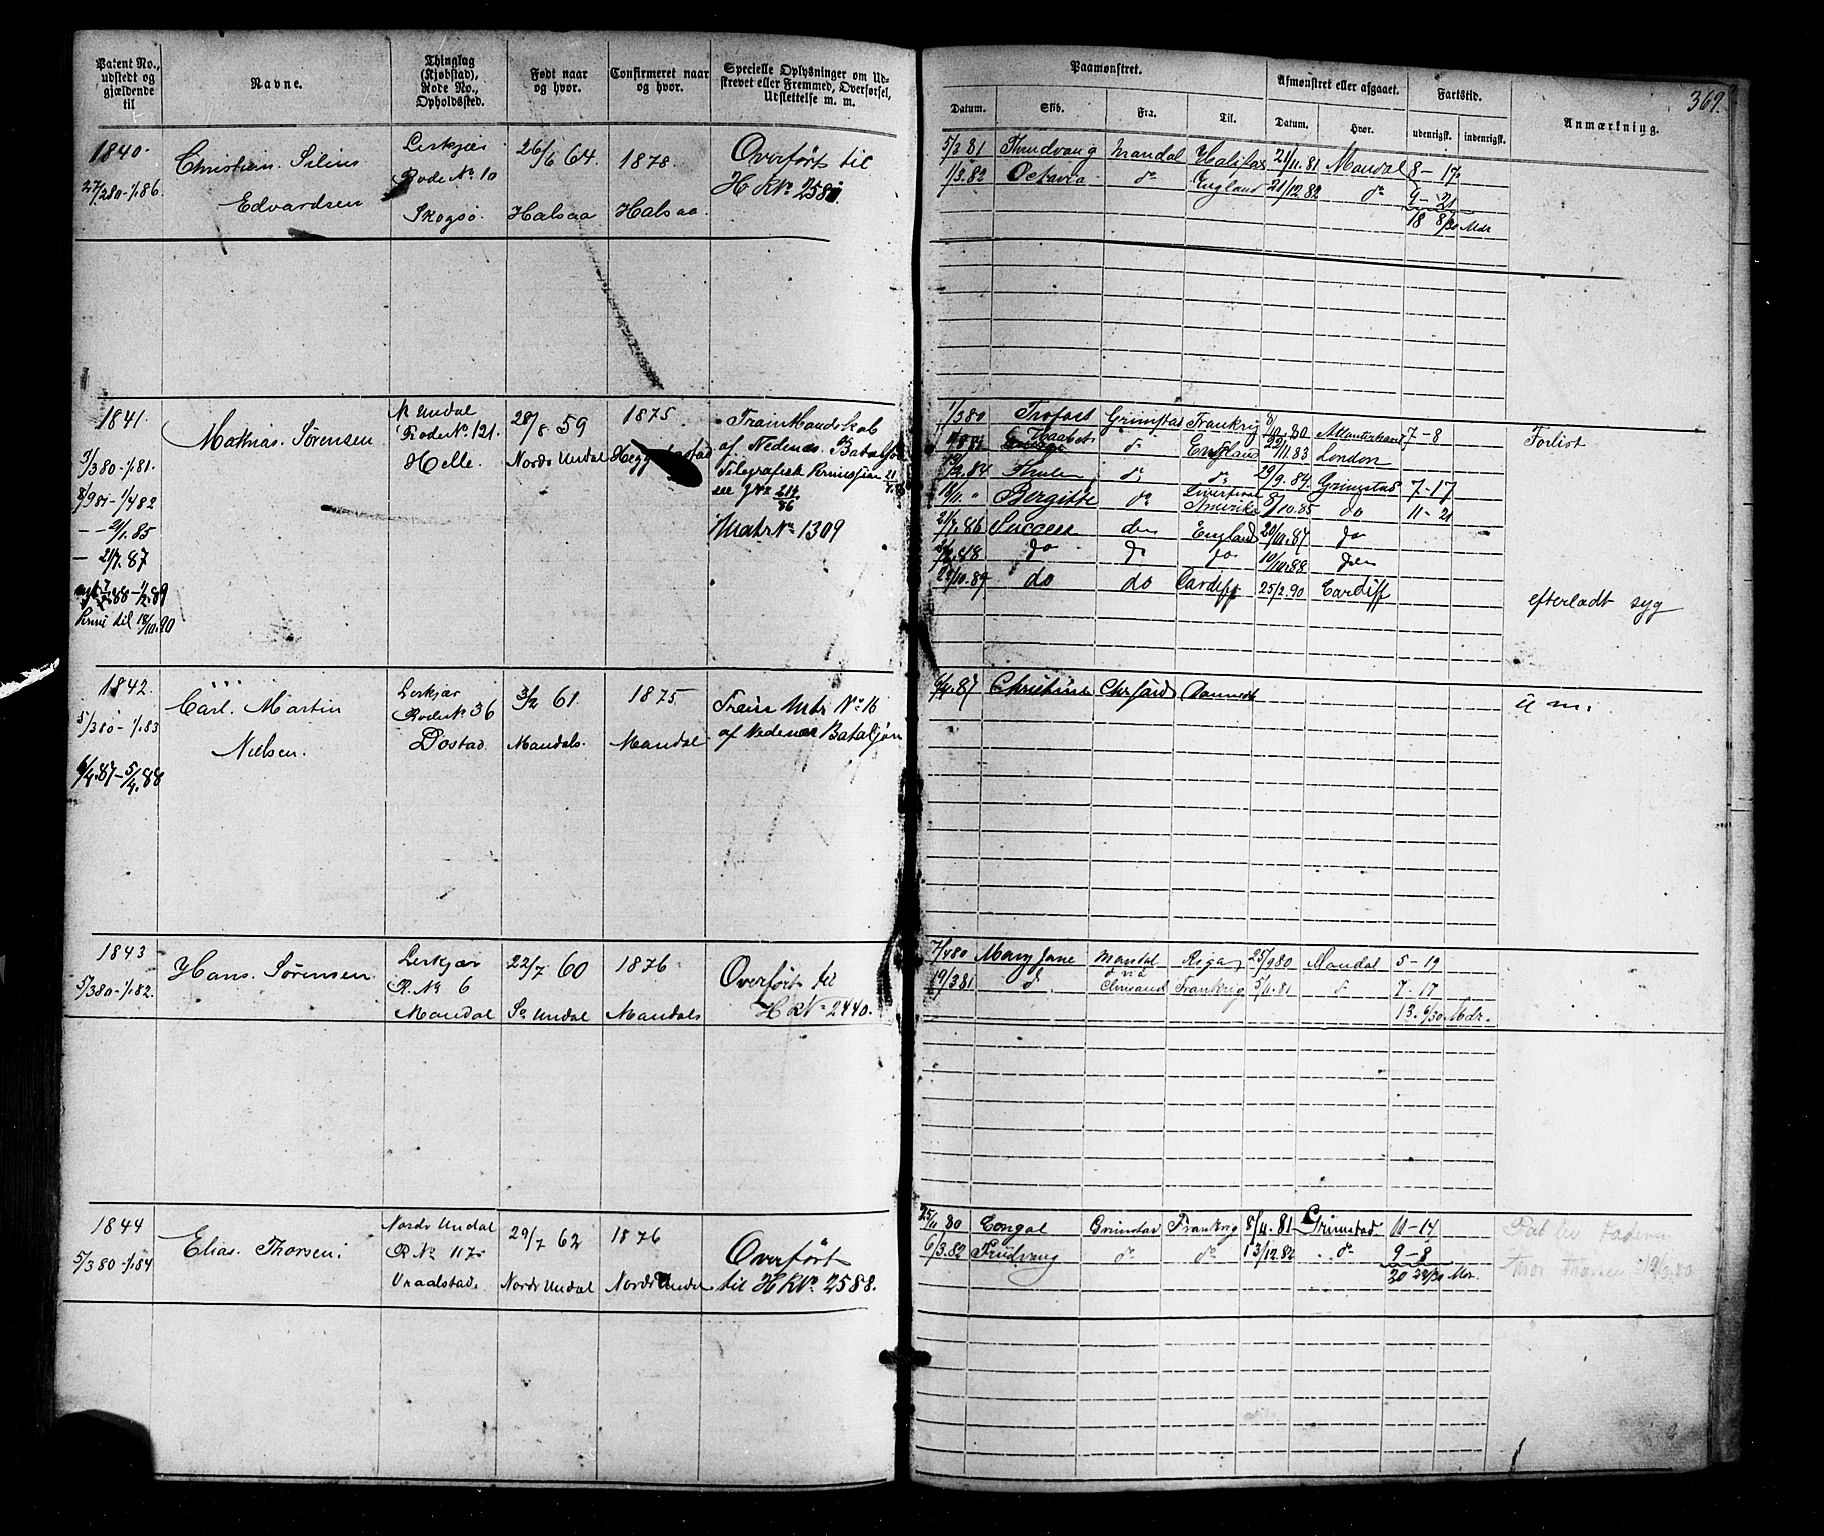 Patent No., udstedt og gjældende til
Navne.
Thinglag (Kjøbstad), Rode No., Opholdssted.
Født naar og hvor.
Confirmeret naar og hvor.
Specielle Oplysninger om Udstrevet eller Fremmed, Overførsel, Udslettelse m. m.
Paamønstret.
Afmønstret eller afgaaet.
Fartstid.
Anmærkning.
369.
Datum.
Skib.
Fra.
Til.
Datum.
Hvor.
udenrigsk.
indenrigsk.
1840.
27/2 80-1/1 86.
Christian Silius
Edvardsen
Rode No 10
Skogsø.
26/6 64.
Halsaa
1878
Halsaa.
Overført til
H K No 2581.
5/3 81 Thrudvang Mandal Halifax 21/11 81 Mandal 8-17
1/3.82 Octavia do England 21/12 82 do 9-21
18 8/30 Mdr
1841.
8/9 81-1/4 82
- 2/1.85
- 21/7.87
til 18/10.90
Mathias Sørensen
N Undal
Rode No 121.
Helle.
28/8 59
Nordr Undal
1875.
Train Mandskab
af Nedenes Bataljon
Telegrafisk Permission
see J No 214/86
Matr No 1309
1/3 80 Trofast Grimstad Frankrig 8/10.80 Atlanterhavet 7-8 Forlist
Haabet do England 22/11 83 London
do do 29/9.84. Grimstad 7-17
Bergitte do Liverpool Amerika 8/10.85 do 11-21
21/7.86 Success do England 20/10.87 do
do do do 10/10.88 do
22/10.89 do do Cardiff 25/2.90 Cardiff
efterladt syg
1842.
5/3 80-1/1.83
6/4.87-5/4.88
Carl Martin
Nielsen.
Rode No 36
Dostad.
3/2 61.
Mandals.
1875
Mandal
Train Mtr No 16
af Nedenes Bataljon
6/4.87 Christine
u m.
1843
5/3 80-1/1.82.
Hans. Sørensen.
R. No 6
Mandal
22/7 60
So Undal
1876
Mandals
Overført til
H K No 2440.
7/4 80 Mary Jane Mandal Riga 25/9 80 Mandal 5-19
19/3 81 do Chrisand Frankrig 5/11.81 do 7-17
13. 6/30 Mdr.
1844
5/3 80-1/1 84
Elias. Thorsen.
Nordr Undal
R No 117
Vraalstad.
29/7 62
Nordr Undal
1876
Nordr Undal
Overført
til H K No 2588.
25/11 80 Congal Grimstad Frankrig 8/11.81 Grimstad 11-14
6/3.82 Trudvang do do 13/12 82 do 9-8
20 22/30 Mdr.